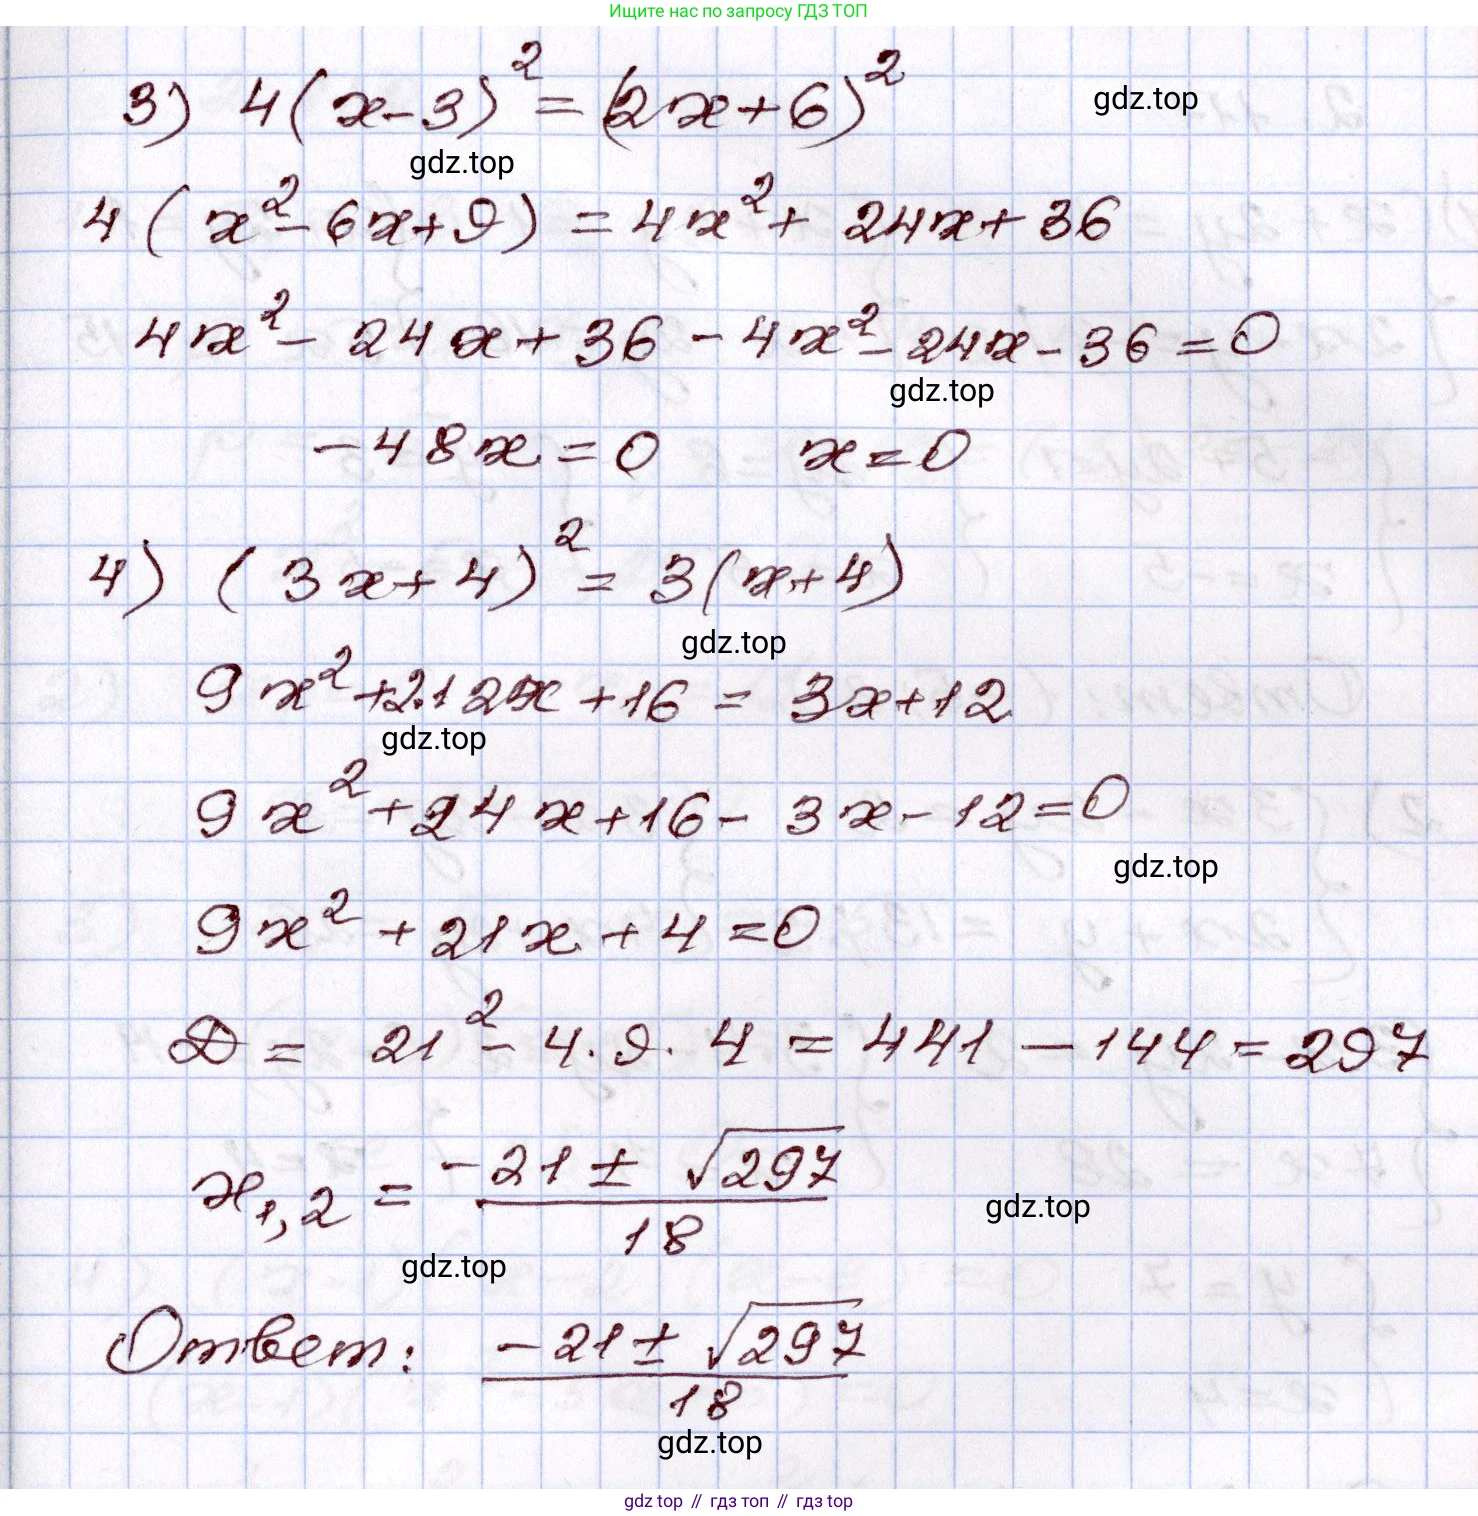 Ищите нас по запросу ГДЗ ТОП
3) 4(x-3)² = (2x+6)²
gdz.top
gdz.top
4(x²-6x+9) = 4x²+24x+36
4x²-24x+36-4x²-24x-36=0
gdz.top
-48x=0 x=0
4) (3x+4)² = 3(x+4)
gdz.top
9x²+2·12x+16 = 3x+12
gdz.top
9x²+24x+16-3x-12=0
gdz.top
9x²+21x+4=0
D = 21²-4·9·4 = 441-144=297
x₁,₂ = (-21±√297)/18
gdz.top
gdz.top
Ответ: (-21±√297)/18
gdz.top
gdz top // гдз топ // гdз top